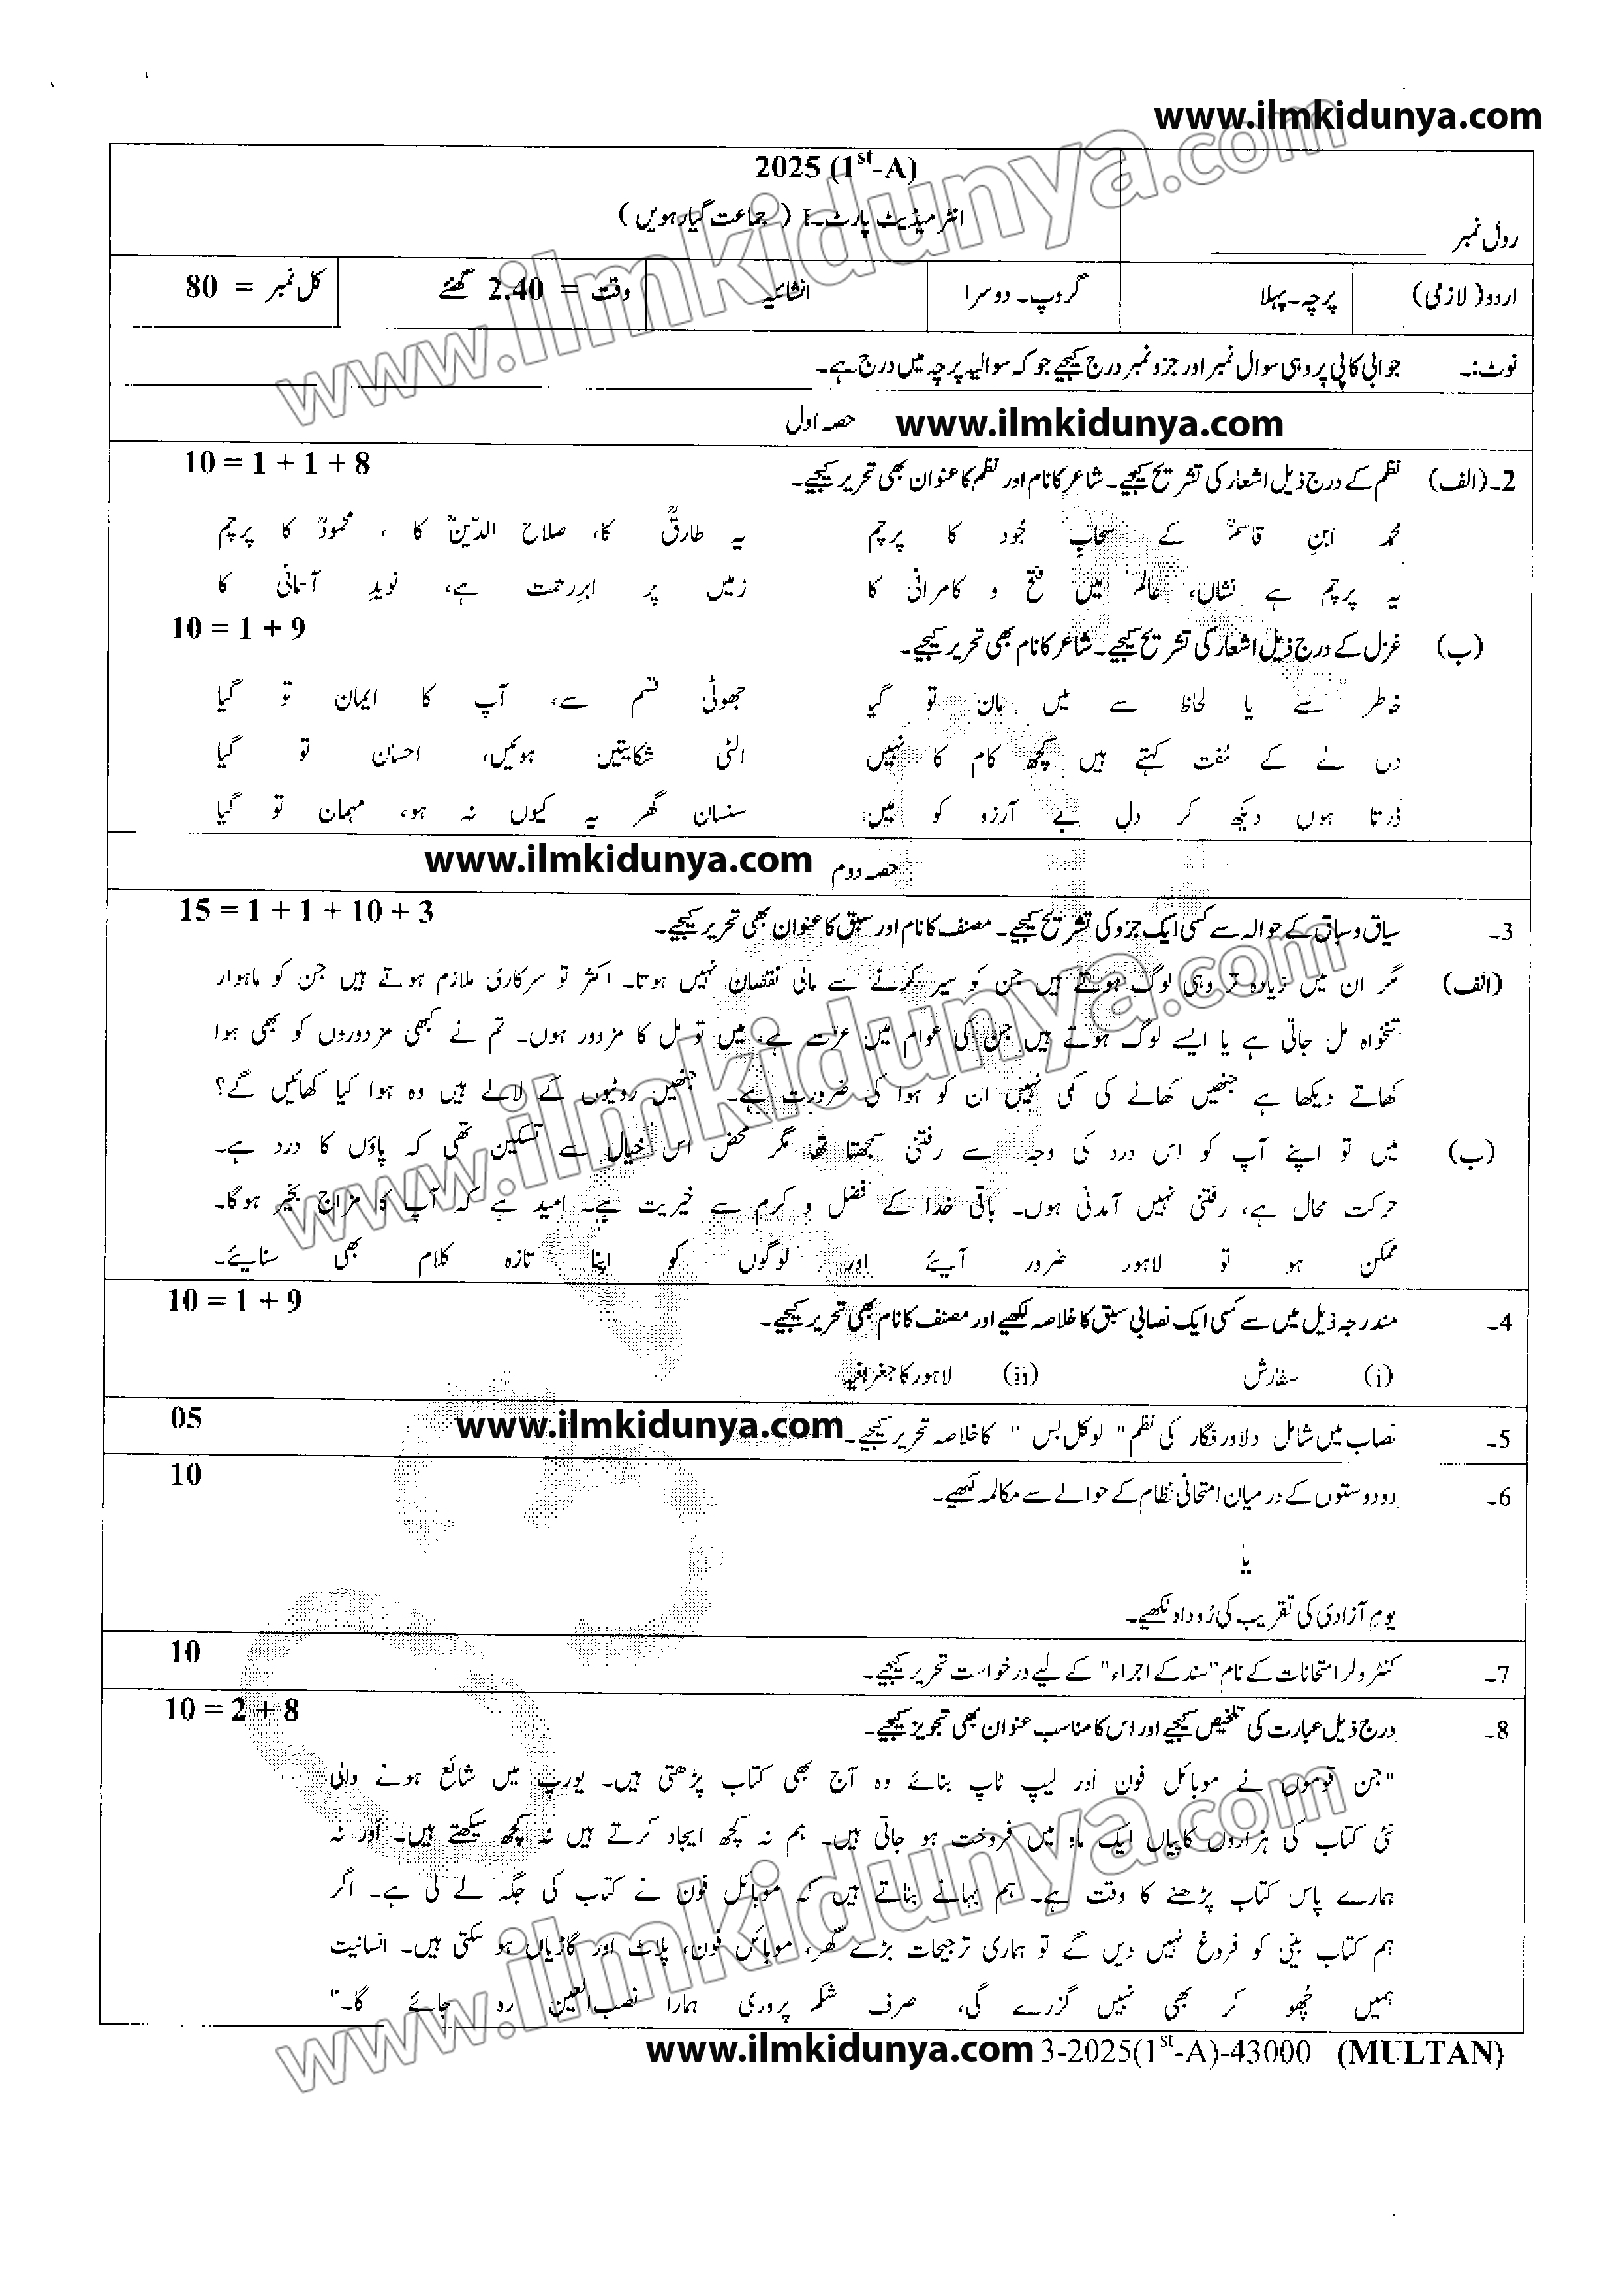 www.ilmkidunya.com
2025 (1st-A)
انٹرمیڈیٹ پارٹ-I ( جماعت گیارہویں )
رول نمبر
اردو( لازمی) پرچہ-پہلا گروپ- دوسرا انشائیہ وقت = 2.40 گھنٹے کل نمبر = 80
نوٹ:- جوابی کاپی پر وہی سوال نمبر اور جزو نمبر درج کیجیے جو کہ سوالیہ پرچہ میں درج ہے۔
حصہ اول www.ilmkidunya.com
2-(الف) نظم کے درج ذیل اشعار کی تشریح کیجیے۔ شاعر کا نام اور نظم کا عنوان بھی تحریر کیجیے۔ 10 = 1 + 1 + 8
محمد ابنِ قاسمؒ کے سحابِ جُود کا پرچم یہ طارقؒ کا، صلاح الدّینؒ کا ، محمودؒ کا پرچم
یہ پرچم ہے نشاں، عالم میں فتح و کامرانی کا زمیں پر ابرِرحمت ہے، نویدِ آسمانی کا
(ب) غزل کے درج ذیل اشعار کی تشریح کیجیے۔ شاعر کا نام بھی تحریر کیجیے۔ 10 = 1 + 9
خاطر سے یا لحاظ سے میں مان تو گیا جھوٹی قسم سے، آپ کا ایمان تو گیا
دل لے کے مُفت کہتے ہیں کچھ کام کا نہیں الٹی شکایتیں ہوئیں، احسان تو گیا
ڈرتا ہوں دیکھ کر دلِ بے آرزو کو میں سنسان گھر یہ کیوں نہ ہو، مہمان تو گیا
www.ilmkidunya.com حصہ دوم
3- سیاق و سباق کے حوالہ سے کسی ایک جزو کی تشریح کیجیے۔ مصنف کا نام اور سبق کا عنوان بھی تحریر کیجیے۔ 15 = 1 + 1 + 10 + 3
(الف) مگر ان میں زیادہ تر وہی لوگ ہوتے ہیں جن کو سیر کرنے سے مالی نقصان نہیں ہوتا۔ اکثر تو سرکاری ملازم ہوتے ہیں جن کو ماہوار
تنخواہ مل جاتی ہے یا ایسے لوگ ہوتے ہیں جن کی عوام میں عزت ہے، میں تو مل کا مزدور ہوں۔ تم نے کبھی مزدوروں کو بھی ہوا
کھاتے دیکھا ہے جنھیں کھانے کی کمی نہیں ان کو ہوا کی ضرورت ہے۔ جنھیں روٹیوں کے لالے ہیں وہ ہوا کیا کھائیں گے؟
(ب) میں تو اپنے آپ کو اس درد کی وجہ سے رفتنی سمجھتا تھا مگر محض اس خیال سے تسکین تھی کہ پاؤں کا درد ہے۔
حرکت محال ہے، رفتنی نہیں آمدنی ہوں۔ باقی خدا کے فضل و کرم سے خیریت ہے۔ امید ہے کہ آپ کا مزاج بخیر ہوگا۔
ممکن ہو تو لاہور ضرور آیئے اور لوگوں کو اپنا تازہ کلام بھی سنایئے۔
4- مندرجہ ذیل میں سے کسی ایک نصابی سبق کا خلاصہ لکھیے اور مصنف کا نام بھی تحریر کیجیے۔ 10 = 1 + 9
(i) سفارش (ii) لاہور کا جغرافیہ
5- نصاب میں شامل دلاور فگار کی نظم" لوکل بس " کا خلاصہ تحریر کیجیے۔ www.ilmkidunya.com 05
6- دو دوستوں کے درمیان امتحانی نظام کے حوالے سے مکالمہ لکھیے۔ 10
یا
یومِ آزادی کی تقریب کی رُوداد لکھیے۔
7- کنٹرولر امتحانات کے نام "سند کے اجراء" کے لیے درخواست تحریر کیجیے۔ 10
8- درج ذیل عبارت کی تلخیص کیجیے اور اس کا مناسب عنوان بھی تجویز کیجیے۔ 10 = 2 + 8
"جن قوموں نے موبائل فون اَور لیپ ٹاپ بنائے وہ آج بھی کتاب پڑھتی ہیں۔ یورپ میں شائع ہونے والی
نئی کتاب کی ہزاروں کاپیاں ایک ماہ میں فروخت ہو جاتی ہیں۔ ہم نہ کچھ ایجاد کرتے ہیں نہ کچھ سیکھتے ہیں۔ اَور نہ
ہمارے پاس کتاب پڑھنے کا وقت ہے۔ ہم بہانے بناتے ہیں کہ موبائل فون نے کتاب کی جگہ لے لی ہے۔ اگر
ہم کتاب بینی کو فروغ نہیں دیں گے تو ہماری ترجیحات بڑے گھر، موبائل فون، پلاٹ اور گاڑیاں ہو سکتی ہیں۔ انسانیت
ہمیں چُھو کر بھی نہیں گزرے گی، صرف شکم پروری ہمارا نصب العین رہ جائے گا۔"
www.ilmkidunya.com 3-2025(1st-A)-43000 (MULTAN)
www.ilmkidunya.com
www.ilmkidunya.com
www.ilmkidunya.com